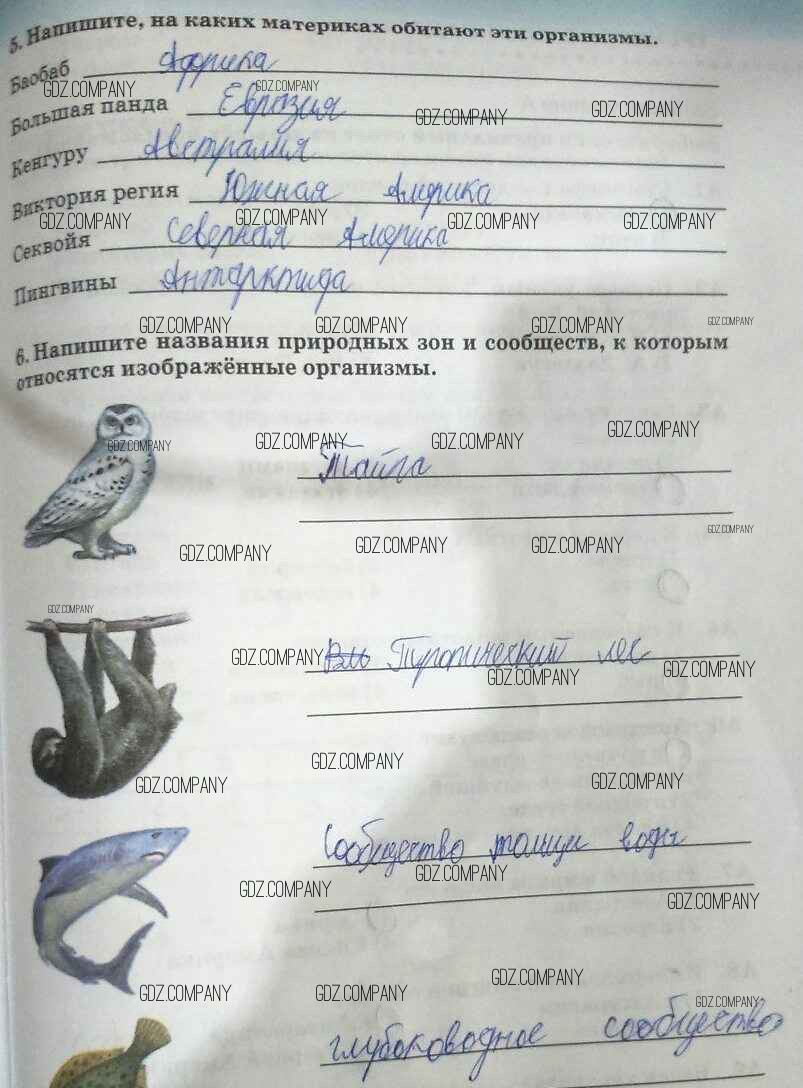 5. Напишите, на каких материках обитают эти организмы.
Баобаб Африка
GDZ.COMPANY GDZ.COMPANY
Большая панда Евразия GDZ.COMPANY GDZ.COMPANY
Кенгуру Австралия
Виктория регия Южная Америка
GDZ.COMPANY GDZ.COMPANY GDZ.COMPANY GDZ.COMPANY
Секвойя Северная Америка
Пингвины Антарктида
GDZ.COMPANY GDZ.COMPANY GDZ.COMPANY GDZ.COMPANY
6. Напишите названия природных зон и сообществ, к которым
относятся изображённые организмы.
GDZ.COMPANY GDZ.COMPANY GDZ.COMPANY GDZ.COMPANY
Тайга
GDZ.COMPANY GDZ.COMPANY GDZ.COMPANY GDZ.COMPANY
GDZ.COMPANY
GDZ.COMPANY Тропический лес
GDZ.COMPANY GDZ.COMPANY
GDZ.COMPANY
GDZ.COMPANY GDZ.COMPANY
Сообщество толщи воды
GDZ.COMPANY GDZ.COMPANY
GDZ.COMPANY
GDZ.COMPANY GDZ.COMPANY GDZ.COMPANY
GDZ.COMPANY
глубоководное сообщество